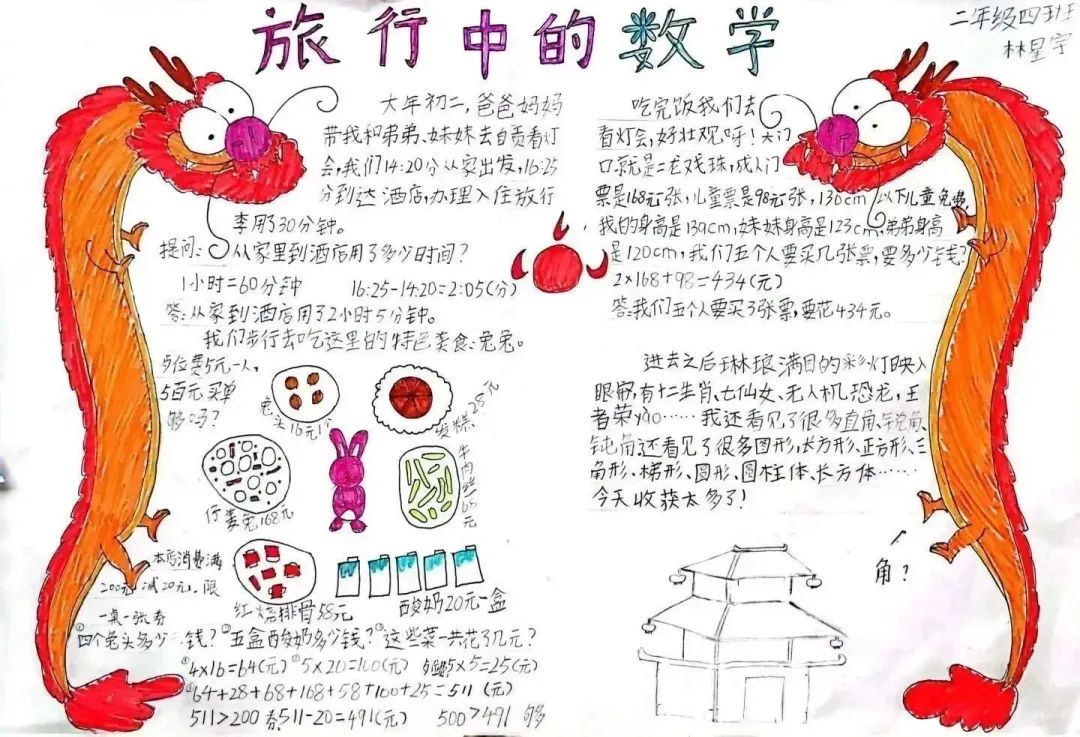 旅行中的数学
二年级四班
林星宇
大年初二,爸爸妈妈
带我和弟弟、妹妹去自贡看灯
会,我们14:20分从家出发,16:25
分到达酒店,办理入住放行
李用了30分钟。
提问:从家里到酒店用了多少时间?
1小时=60分钟 16:25-14:20=2:05(分)
答:从家到酒店用了2小时5分钟。
我们步行去吃这里的特色美食:兔兔。
占位费5元一人,
5百元买单
够吗?
兔头16元1个
发糕28元
仔姜兔168元
牛肉丝68元
本店消费满
200元减20元,限
一桌一张券
红烧排骨58元
酸奶20元一盒
①四个兔头多少钱?②五盒酸奶多少钱?③这些菜一共花了几元?
①4×16=64(元) ②5×20=100(元) 5×5=25(元)
64+28+68+168+58+100+25=511(元)
511>200 券511-20=491(元) 500>491 够
吃完饭我们去
看灯会,好壮观呀!大门
口就是二龙戏珠,成人门
票是168元张,儿童票是98元张,130cm以下儿童免费,
我的身高是139cm,妹妹身高是123cm,弟弟身高
是120cm,我们五个人要买几张票,要多少钱?
2×168+98=434(元)
答:我们五个人要买3张票,要花434元。
进去之后琳琅满目的彩灯映入
眼帘,有十二生肖、七仙女、无人机、恐龙,王
者荣yao……我还看见了很多直角、锐角、
钝角还看见了很多图形,长方形、正方形、三
角形、梯形、圆形、圆柱体、长方体……
今天收获太多了!
角?